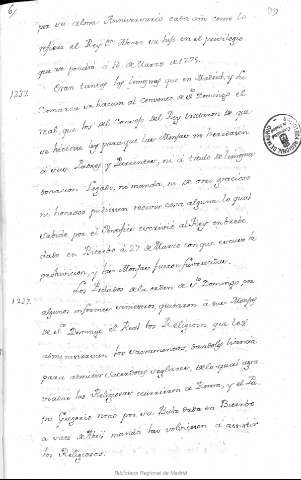 6
99
por su alma Anniversario cada año como lo
refiere el Rey Dn. Alonso su hijo en el privilegio
que va puesto a 14 de Marzo de 1275.
1237.
Eran tantas las limosnas que en Madrid, y su
Comarca se hacian al convento de Sto. Domingo el
Real, que los del Consejo del Rey trataron de que
se hiciese ley para que las Monjas no heredasen
a sus Padres, y Parientes, ni a titulo de limosna
donacion, Legado, ni manda, ni de otro gracioso
ni honeroso pudiesen recivir cosa alguna lo qual
sabido por el Pontifice escrivió al Rey un breve
dado en Viterbo á 27 de Marzo con que cesaron la
prohivicion, y las Monjas fueron favorecidas.
Los Prelados de la orden de Sto. Domingo por
1237.
algunos informes siniestros, quitaron á sus Monjas
de Sto. Domingo el Real los Religiosos que les
administravan los Sacramentos, dandoles licencia
para admitir Sacerdotes seglares, de lo qual agra
viadas las Religiosas escrivieron a Roma, y el Pa
pa Gregorio nono por su Bula dada en Viterbo
a seis de Abril mandó las volviesen á asistir
los Religiosos.
Biblioteca Regional de Madrid